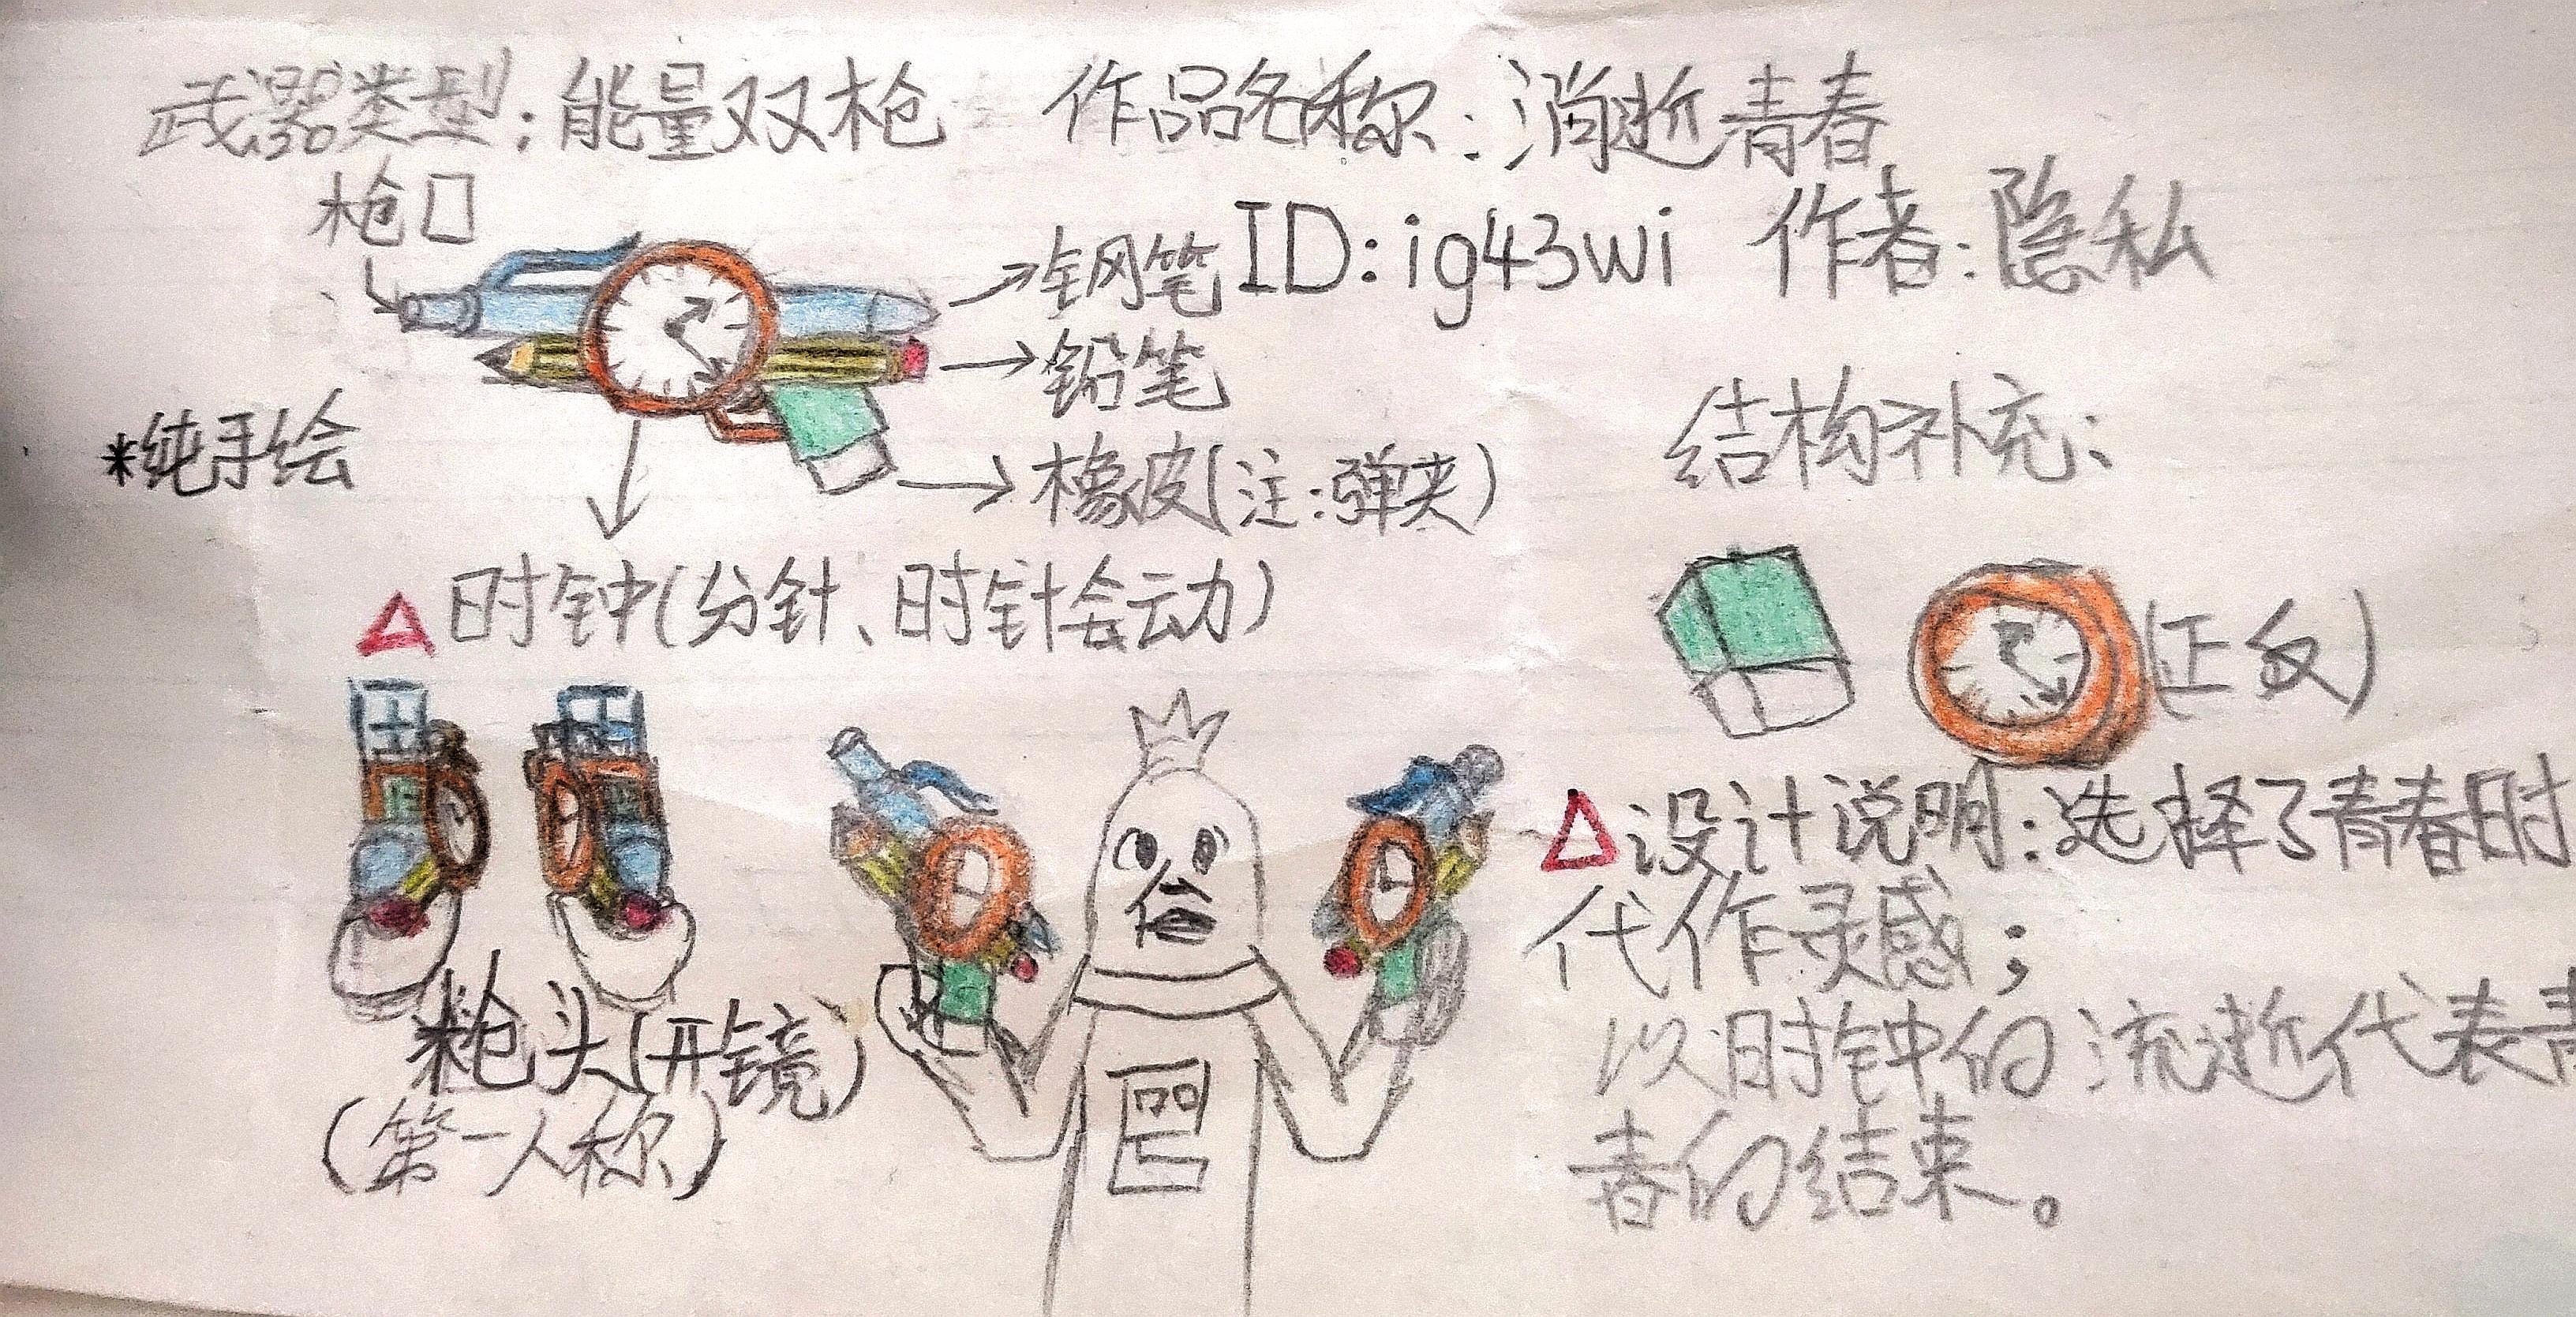 武器类型:能量双枪 作品名称:消逝青春
枪口
ID:ig43wi 作者:隐私
钢笔
铅笔
*纯手绘
橡皮(注:弹夹)
结构补充:
△时钟(分针、时针会动)
(正反)
枪头(开镜)
(第一人称)
△设计说明:选择了青春时
代作灵感;
以时钟的流逝代表青
春的结束。